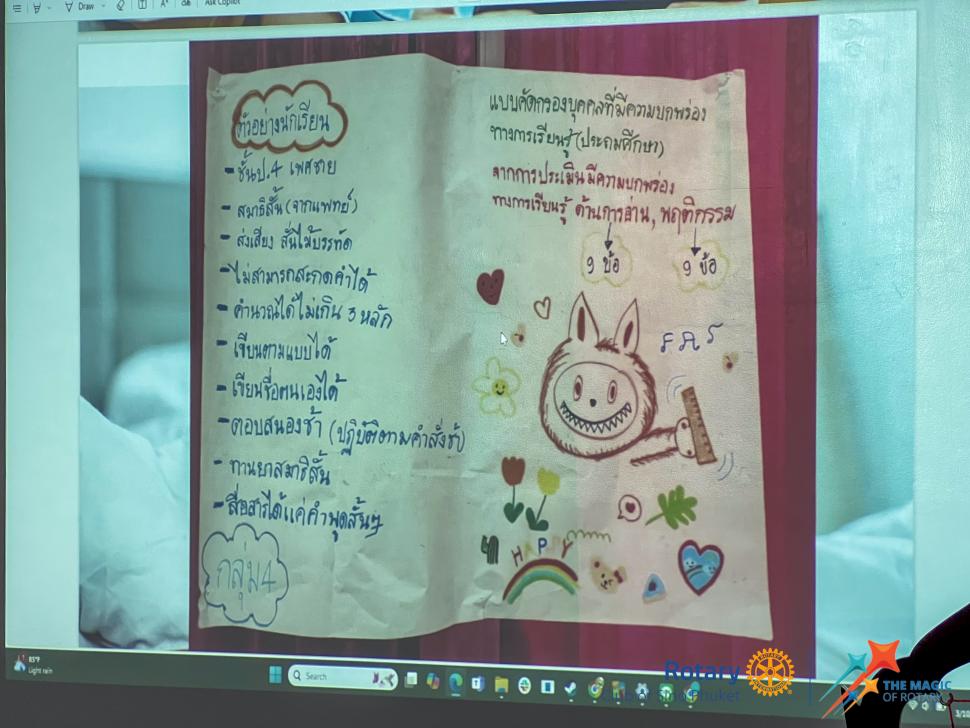 Draw
Ask Copilot
ตัวอย่างนักเรียน
- ชั้นป.4 เพศชาย
- สมาธิสั้น (จากแพทย์)
- ส่งเสียง สั่นไม้บรรทัด
- ไม่สามารถสะกดคำได้
- คำนวณได้ไม่เกิน 3 หลัก
- เขียนตามแบบได้
- เขียนชื่อตนเองได้
- ตอบสนองช้า (ปฏิบัติตามคำสั่งช้า)
- ทานยาสมาธิสั้น
- สื่อสารได้แค่คำพูดสั้นๆ
กลุ่ม4
แบบคัดกรองบุคคลที่มีความบกพร่อง
ทางการเรียนรู้ (ประถมศึกษา)
จากการประเมิน มีความบกพร่อง
ทางการเรียนรู้ ด้านการอ่าน, พฤติกรรม
9 ข้อ
9 ข้อ
HAPPY
85°F
Light rain
Search
Rotary
Club of Sino Phuket
THE MAGIC
OF ROTARY